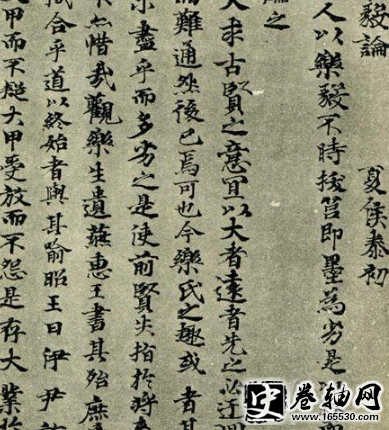 毅論 夏侯泰初
人以樂毅不時拔莒即墨為劣是
論之
夫求古賢之意宜以大者遠者先之必迂
而難通然後已焉可也今樂氏之趣或者其
未盡乎而多劣之是使前賢失指於將
不亦惜哉觀樂生遺燕惠王書其殆庶
機合乎道以終始者與其喻昭王曰伊尹
大甲而不疑大甲受放而不怨是存大業於
史卷轴网
www.165530.com